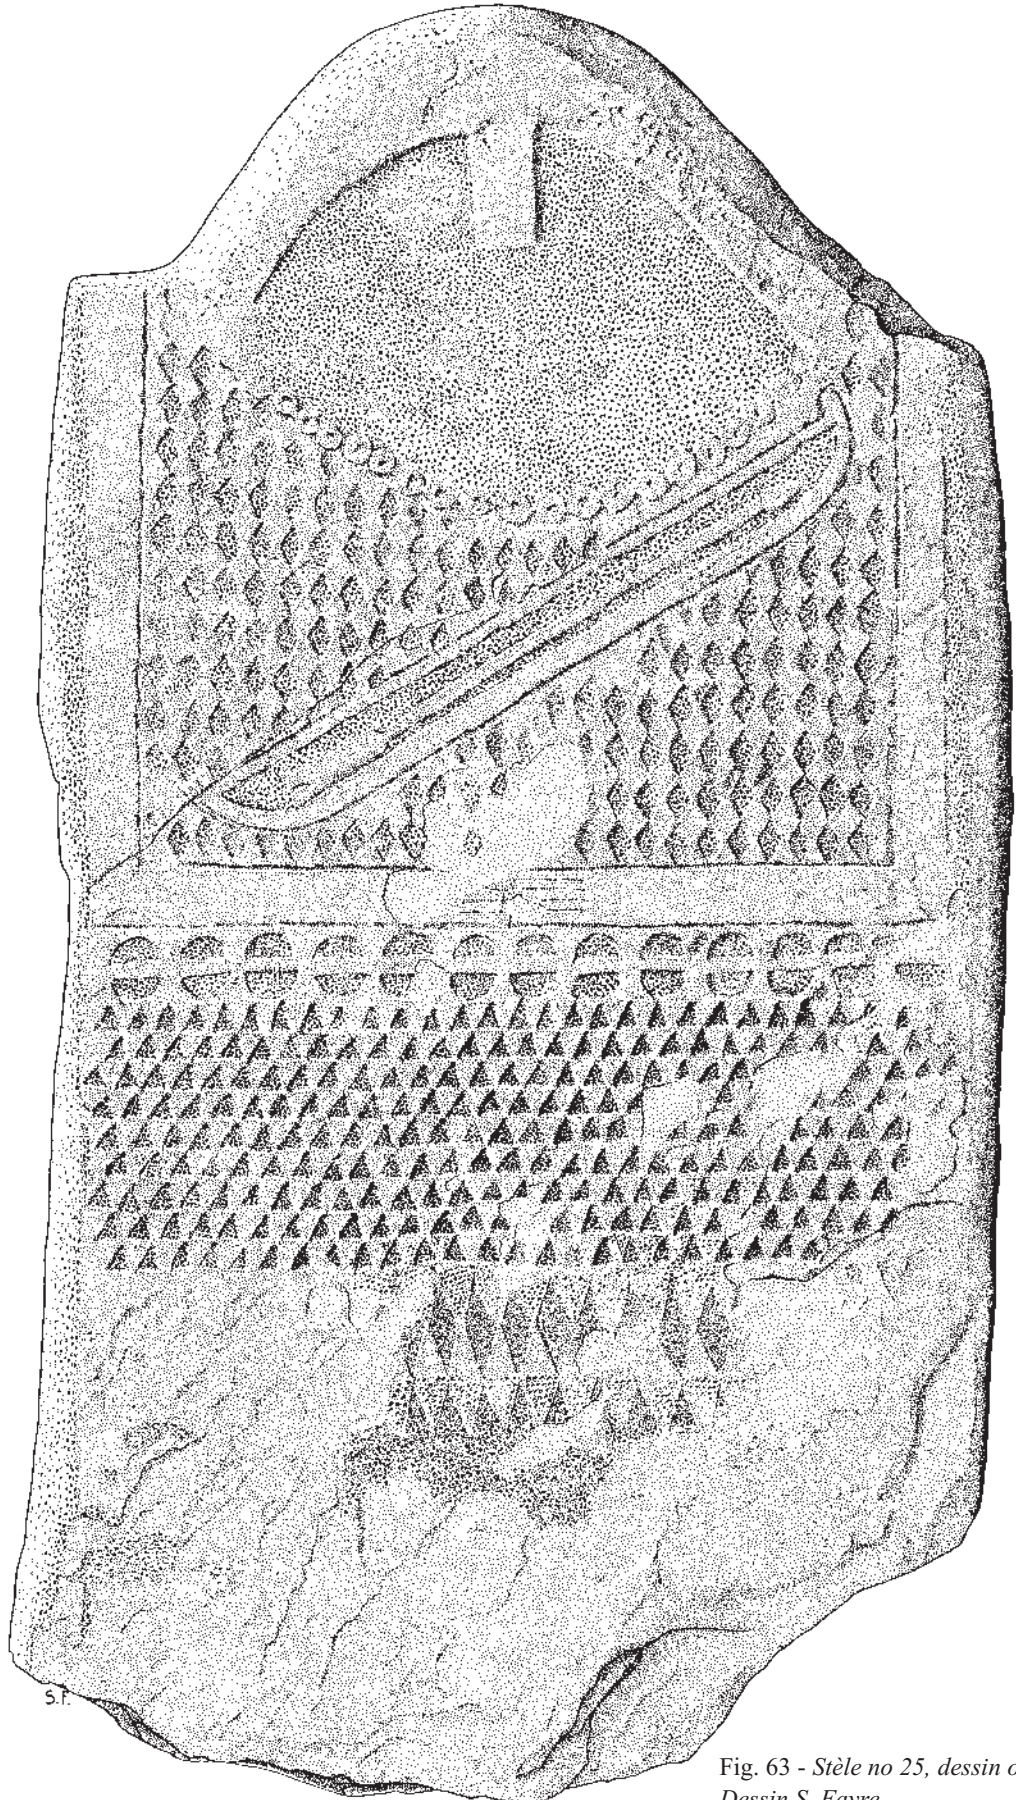 S.F.
Fig. 63 - Stèle no 25, dessin
Dessin S. Favre